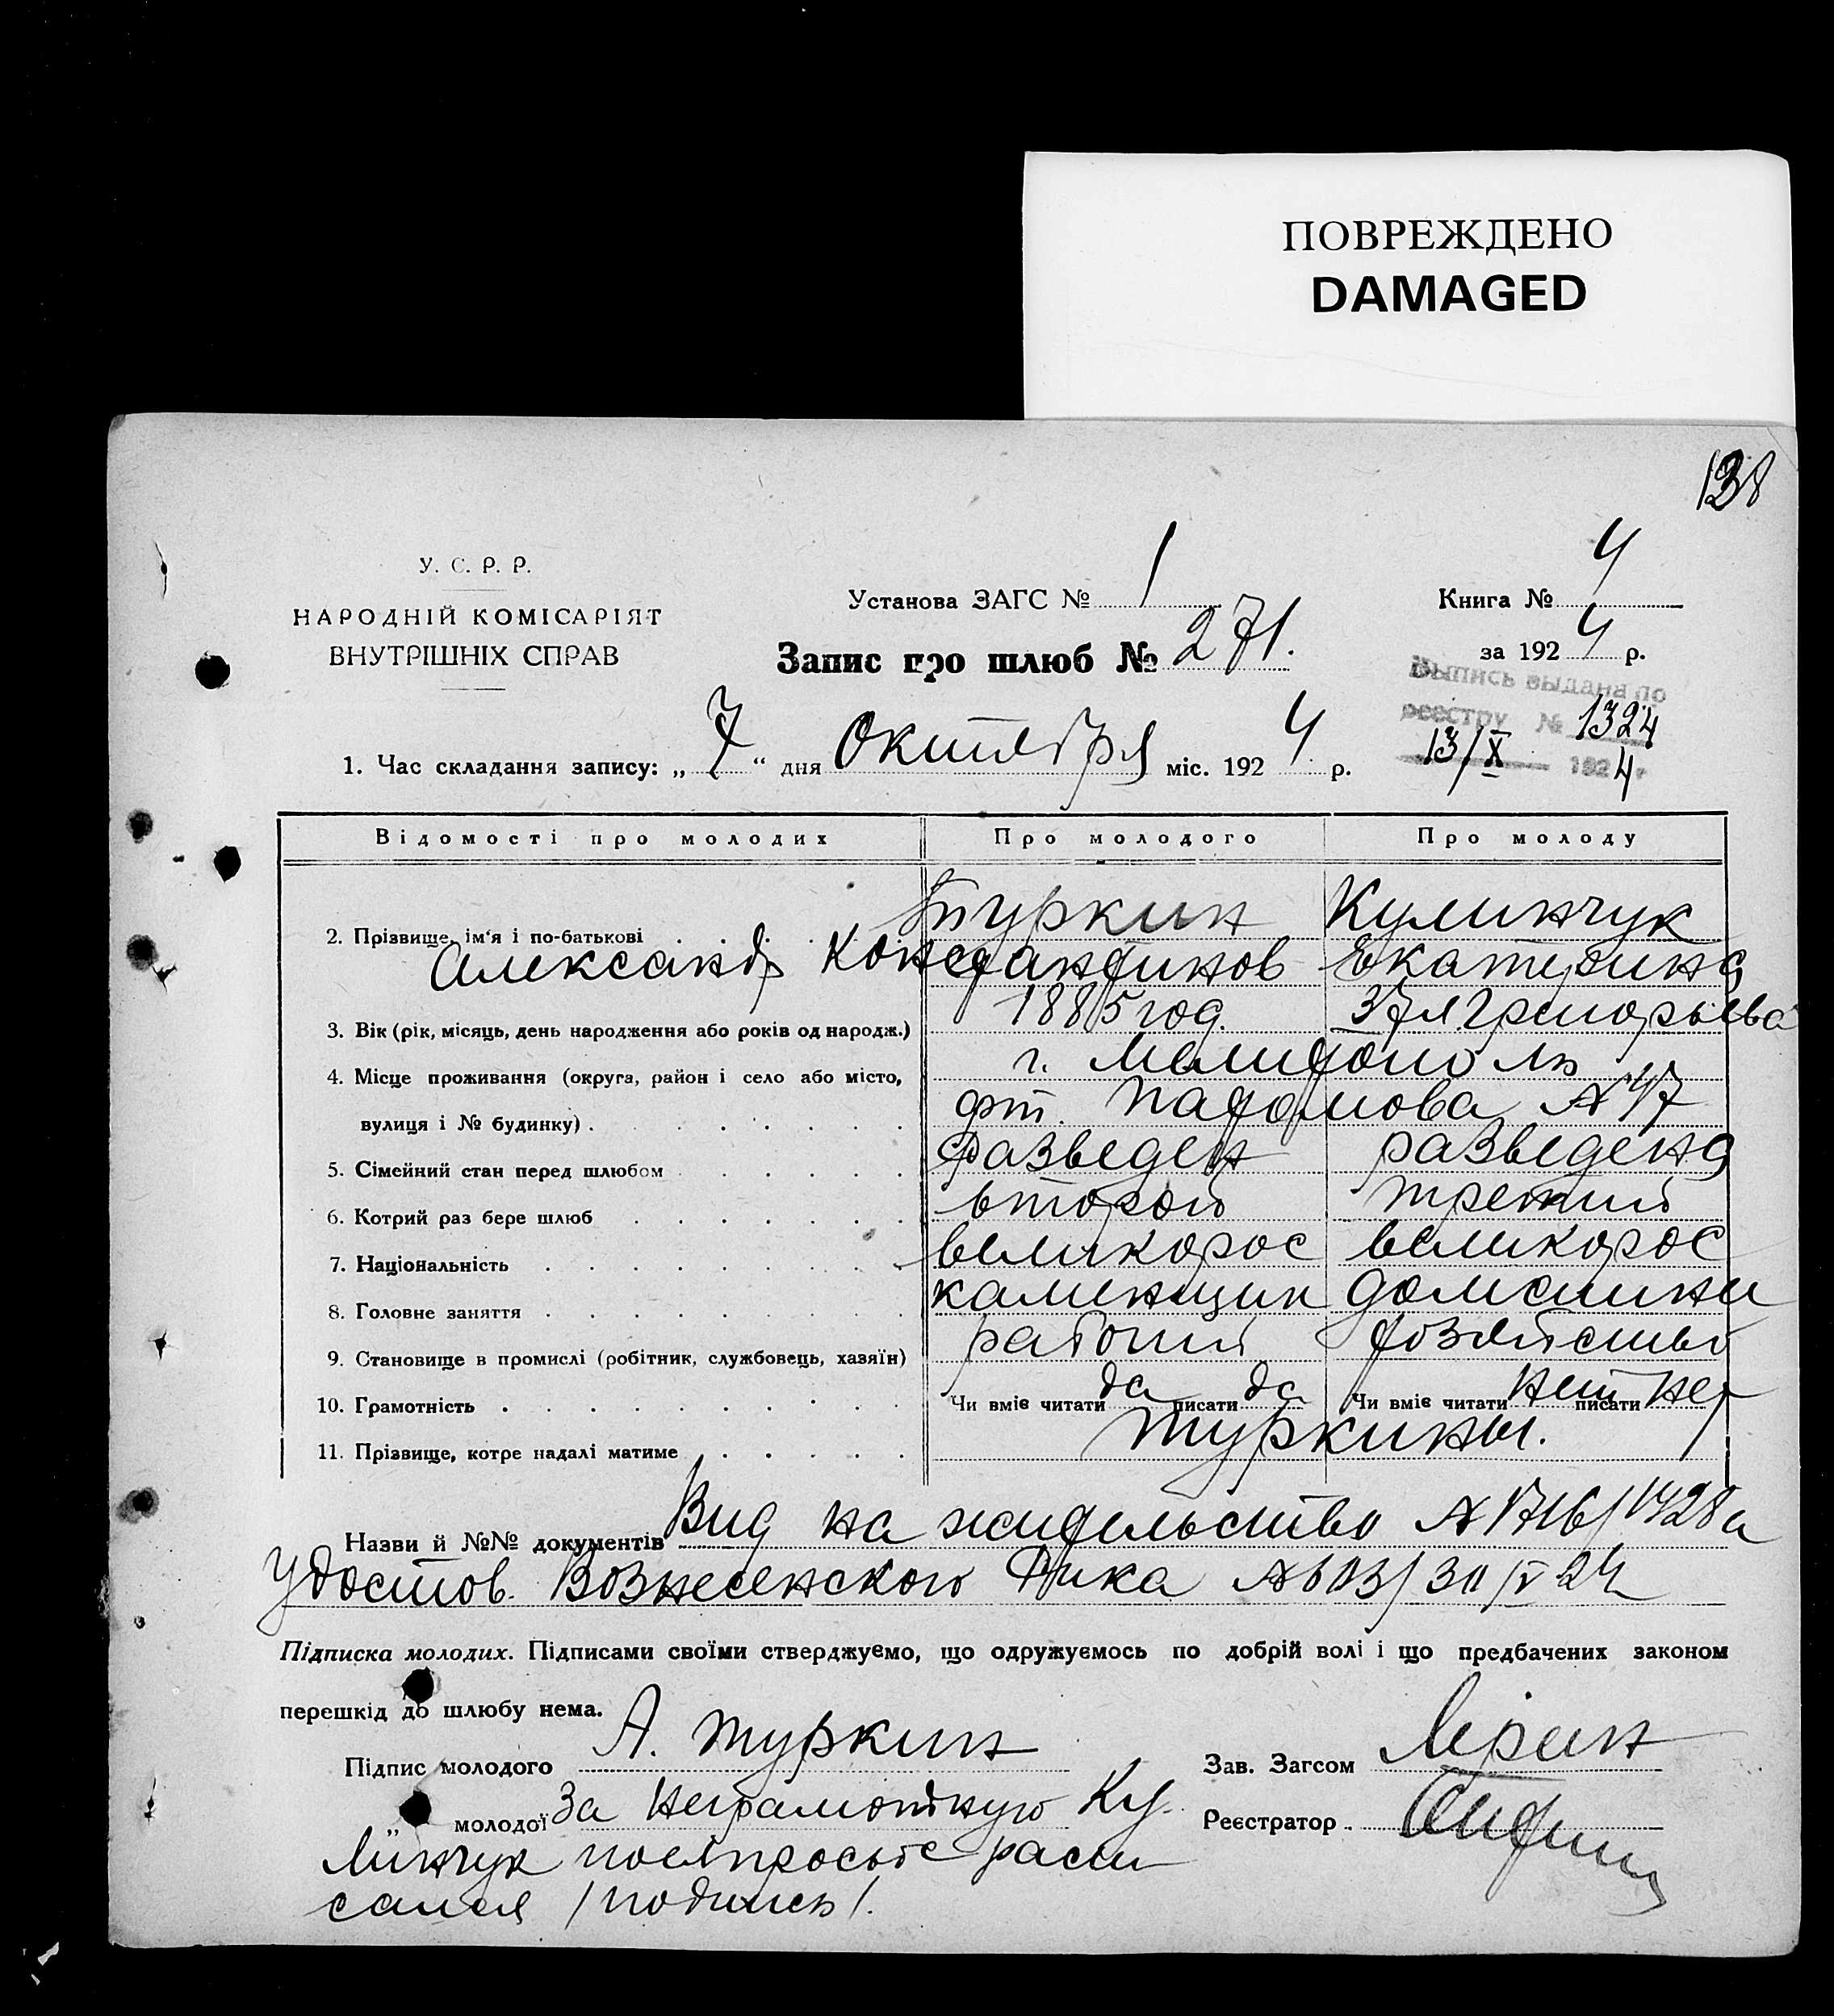 ПОВРЕЖДЕНО
DAMAGED
138
У. С. Р. Р.
НАРОДНІЙ КОМІСАРІЯТ
ВНУТРІШНІХ СПРАВ
Установа ЗАГС № 1
Книга № 4
Запис про шлюб № 271.
за 1924 р.
Выпись выдана по
реестру № 1324
13/X 1924 г
1. Час складання запису: „7“ дня Октября міс. 1924 р.
Відомості про молодих Про молодого Про молоду
2. Прізвище, ім'я і по-батькові Туркин Кулинчук
Александр Константинов Екатерина
3. Вік (рік, місяць, день народження або років од народж.) 1885 год. 37 л Григорьева
4. Місце проживання (округа, район і село або місто, г. Мелитополь
вулиця і № будинку) № 47
5. Сімейний стан перед шлюбом разведен разведена
6. Котрий раз бере шлюб второй третий
7. Національність великорос великорос
8. Головне заняття каменщик домашн
9. Становище в промислі (робітник, службовець, хазяїн) рабочий хозяйство
10. Грамотність Чи вміє читати да писати да Чи вміє читати нет писати нет
11. Прізвище, котре надалі матиме Туркины.
Назви й №№ документів Вид на жительство № 1716/1428 и
удостов. Вознесенского Рика №
Підписка молодих. Підписами своїми стверджуємо, що одружуємось по добрій волі і що предбачених законом
перешкід до шлюбу нема.
Підпис молодого А. Туркин Зав. Загсом
„ молодої За неграмотную Ку- Реєстратор
линчук по ея просьбе распи
сался /подпись/.